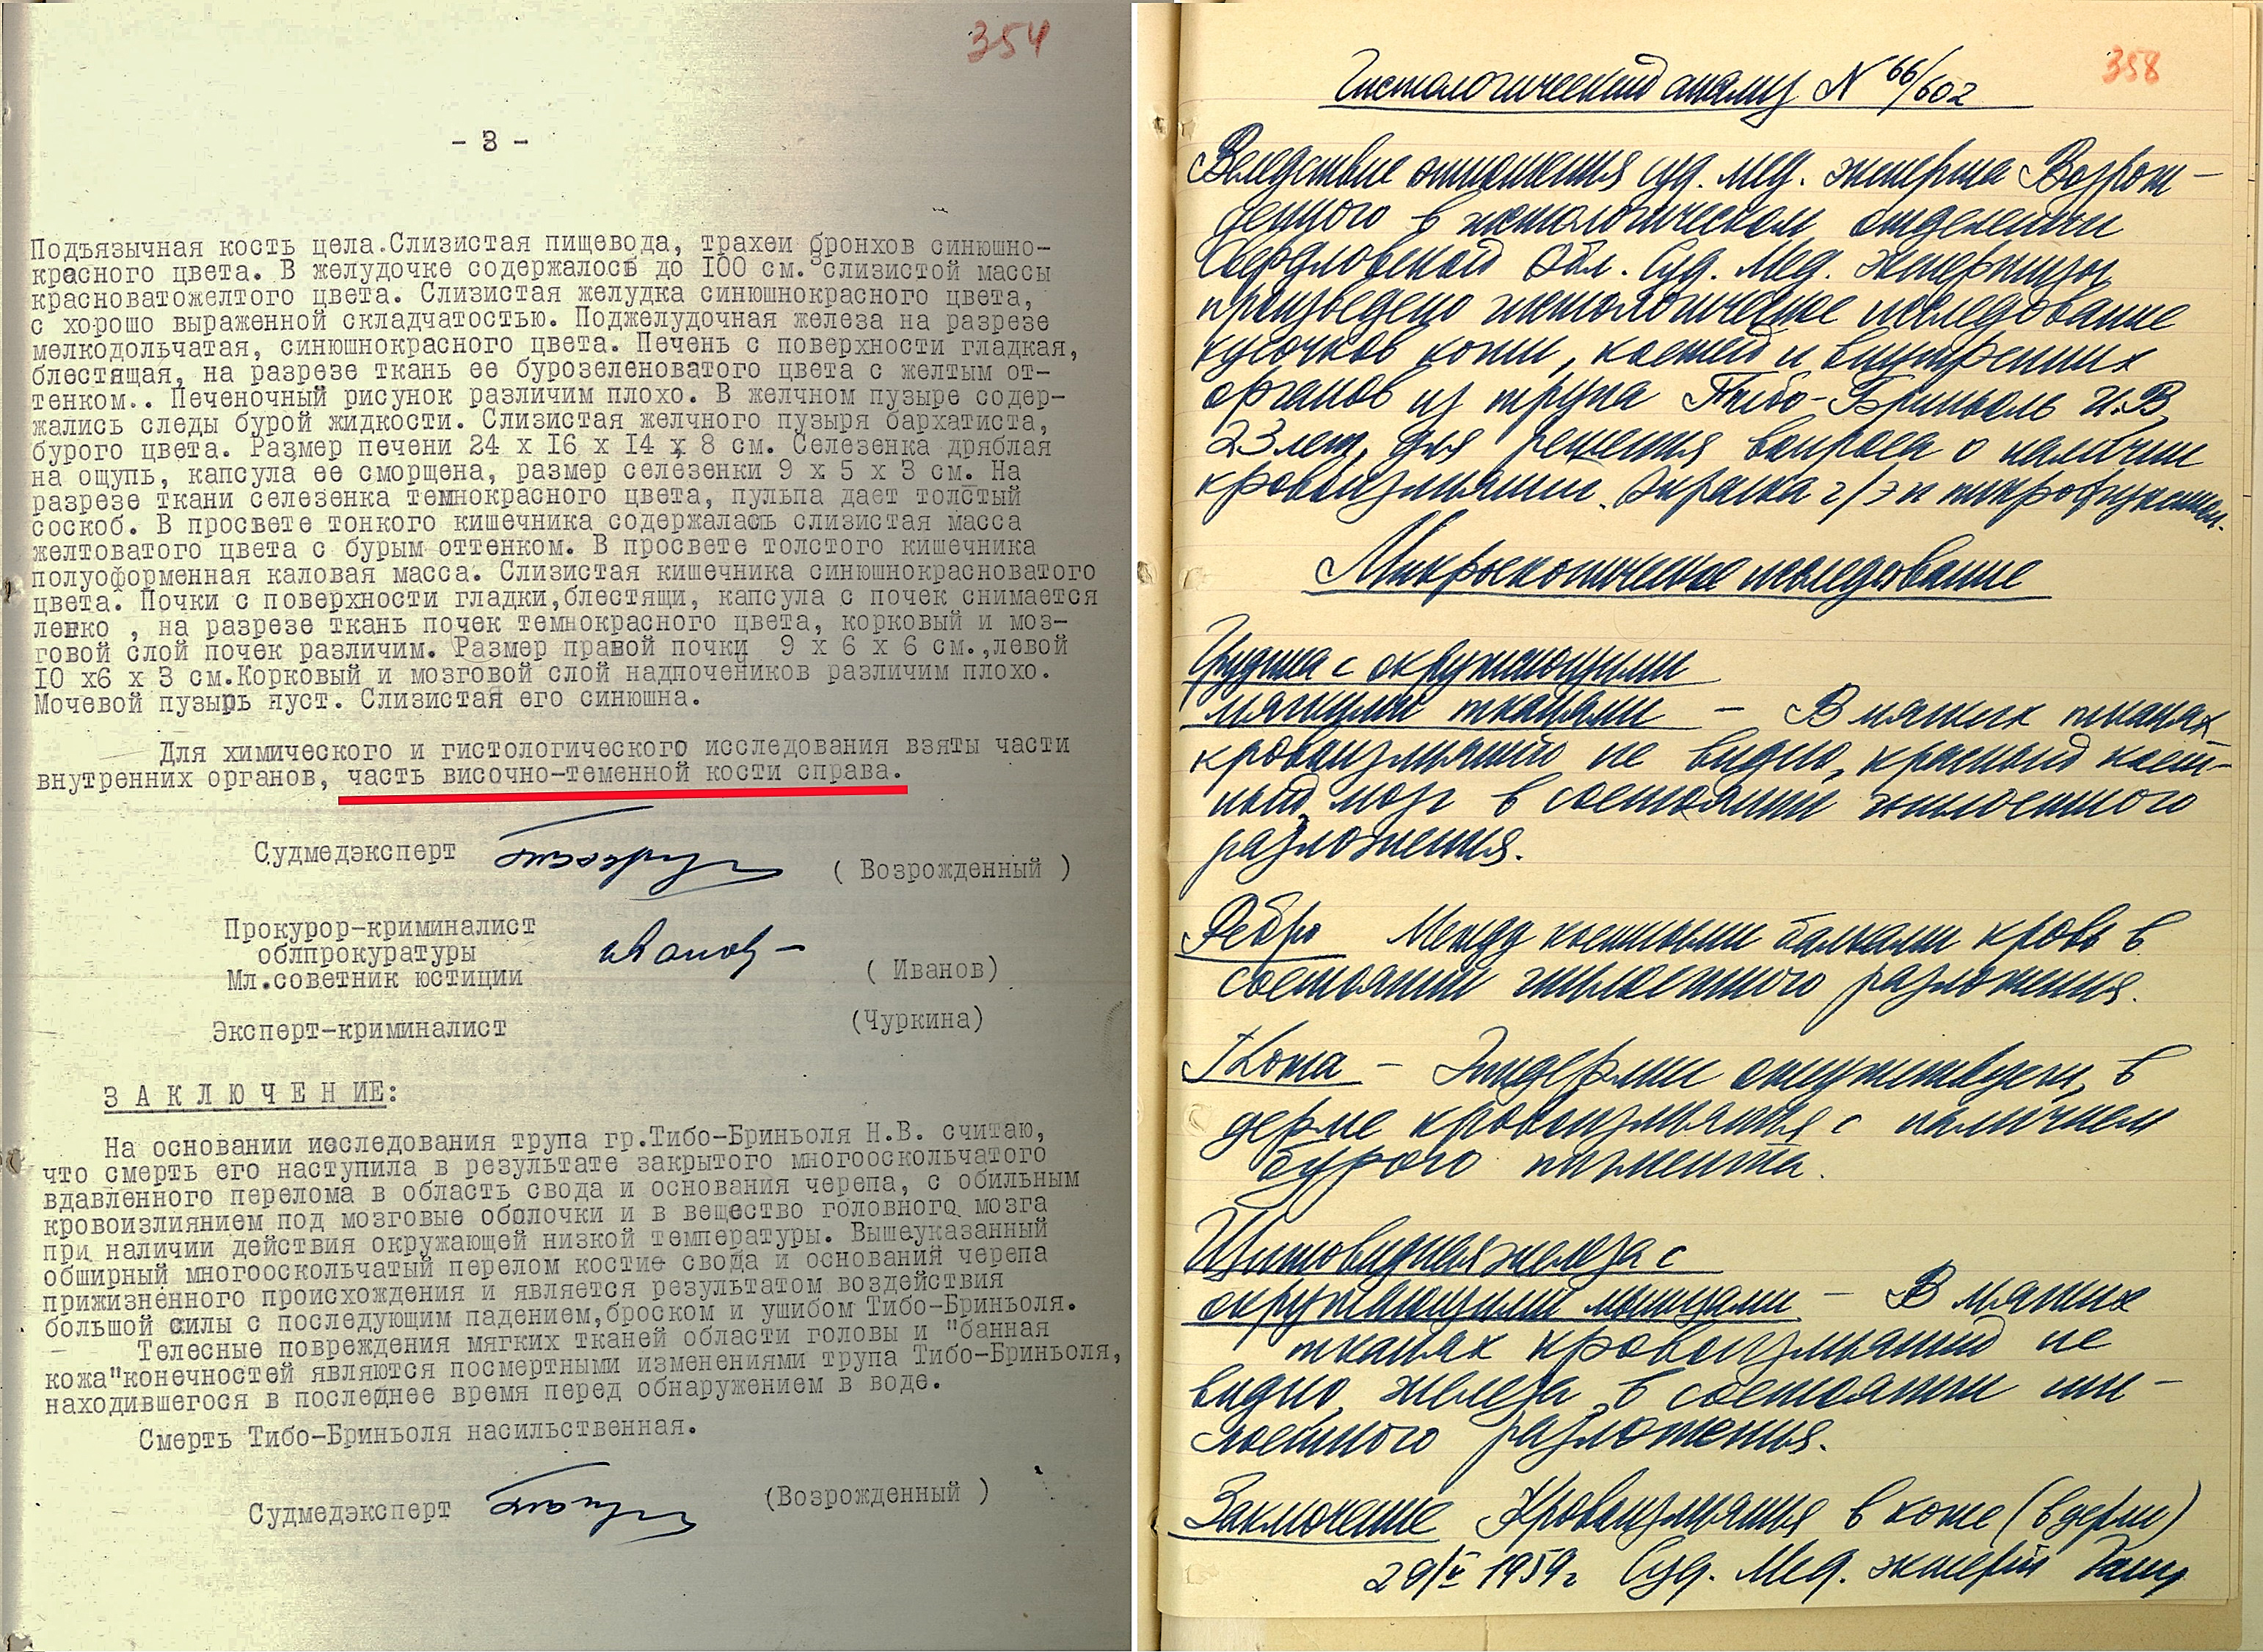 354
- 3 -
Подъязычная кость цела.Слизистая пищевода, трахеи бронхов синюшно-
красного цвета. В желудочке содержалось до 100 см.3 слизистой массы
красноватожелтого цвета. Слизистая желудка синюшнокрасного цвета,
с хорошо выраженной складчатостью. Поджелудочная железа на разрезе
мелкодольчатая, синюшнокрасного цвета. Печень с поверхности гладкая,
блестящая, на разрезе ткань ее бурозеленоватого цвета с желтым от-
тенком.. Печеночный рисунок различим плохо. В желчном пузыре содер-
жались следы бурой жидкости. Слизистая желчного пузыря бархатиста,
бурого цвета. Размер печени 24 х 16 х 14 х 8 см. Селезенка дряблая
на ощупь, капсула ее сморщена, размер селезенки 9 х 5 х 3 см. На
разрезе ткани селезенка темнокрасного цвета, пульпа дает толстый
соскоб. В просвете тонкого кишечника содержалась слизистая масса
желтоватого цвета с бурым оттенком. В просвете толстого кишечника
полуоформенная каловая масса. Слизистая кишечника синюшнокрасноватого
цвета. Почки с поверхности гладки,блестящи, капсула с почек снимается
легко , на разрезе ткань почек темнокрасного цвета, корковый и моз-
говой слой почек различим. Размер правой почки 9 х 6 х 6 см.,левой
10 х6 х 3 см.Корковый и мозговой слой надпочечников различим плохо.
Мочевой пузырь пуст. Слизистая его синюшна.
Для химического и гистологического исследования взяты части
внутренних органов, часть височно-теменной кости справа.
Судмедэксперт
( Возрожденный )
Прокурор-криминалист
облпрокуратуры
Мл.советник юстиции
Иванов
( Иванов)
Эксперт-криминалист
(Чуркина)
З А К Л Ю Ч Е Н ИЕ:
На основании исследования трупа гр.Тибо-Бриньоля Н.В. считаю,
что смерть его наступила в результате закрытого многооскольчатого
вдавленного перелома в область свода и основания черепа, с обильным
кровоизлиянием под мозговые оболочки и в вещество головного мозга
при наличии действия окружающей низкой температуры. Вышеуказанный
обширный многооскольчатый перелом костие свода и основания черепа
прижизненного происхождения и является результатом воздействия
большой силы с последующим падением,броском и ушибом Тибо-Бриньоля.
Телесные повреждения мягких тканей области головы и "банная
кожа"конечностей являются посмертными изменениями трупа Тибо-Бриньоля,
находившегося в последнее время перед обнаружением в воде.
Смерть Тибо-Бриньоля насильственная.
Судмедэксперт
(Возрожденный )
358
Гистологический анализ N 66/602
Вследствие отношения суд. мед. эксперта Возрож-
денного в гистологическом отделении
Свердловской Обл. Суд. Мед. Экспертизы
произведено гистологическое исследование
кусочков кожи, костей и внутренних
органов из трупа Тибо-Бриньоль Н.В.
23 лет, для решения вопроса о наличии
кровоизлияний. Окраска г/э и пикрофуксином.
Микроскопическое исследование
Грудина с окружающими
мягкими тканями - В мягких тканях
кровоизлияний не видно, красный кост-
ный мозг в состоянии гнилостного
разложения.
Ребро Между костными балками кровь в
состоянии гнилостного разложения.
Кожа - Эпидермис отсутствует, в
дерме кровоизлияния с наличием
бурого пигмента.
Щитовидная железа с
окружающими мышцами - В мягких
тканях кровоизлияний не
видно, железа в состоянии гни-
лостного разложения.
Заключение Кровоизлияния в коже (в дерме)
29/V 1959г Суд. Мед. эксперт Ганц